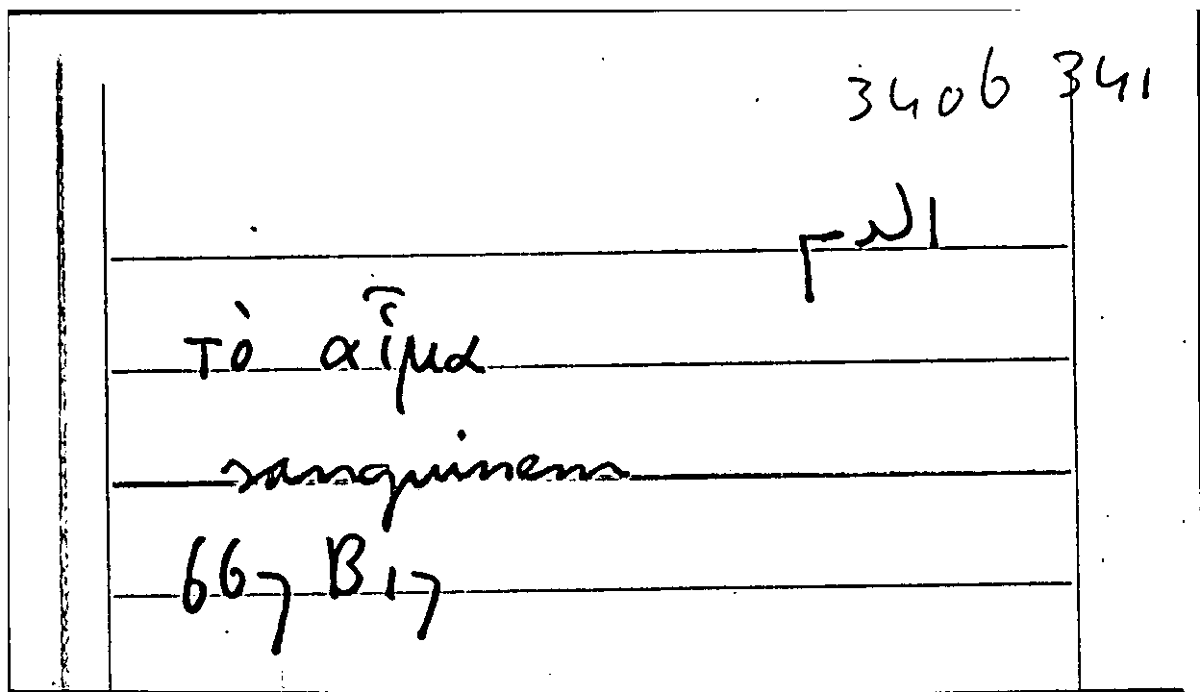 340b 341
الدم
τὸ αἷμα
sanguinem
667 B 17